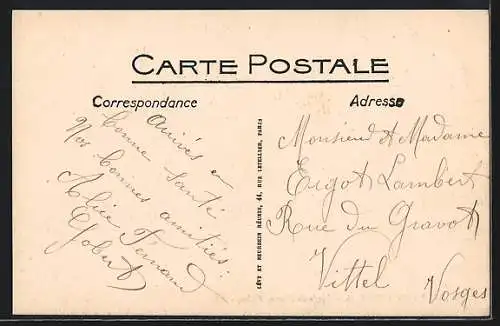 CARTE POSTALE
Correspondance
Adresse
arrivés en
bonne santé
Nos bonnes amitiés.
Alice Fernand
Gobert
CÔTÉ ET BOURBEIN RÉUNIS, 41, RUE LETELLIER, PARIS
Monsieur & Madame
Ergot Lambert
Rue du Gravot
Vittel
Vosges